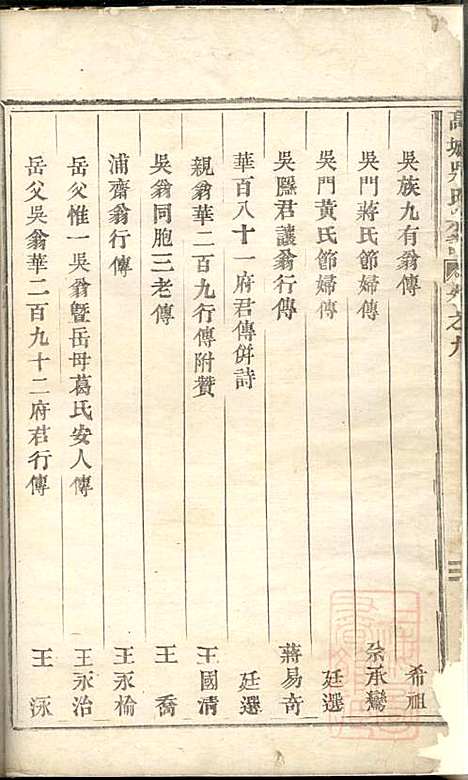 吳族九有翁傳 希祖
吳門蔣氏節婦傳 承鸞
吳門黃氏節婦傳 廷選
吳 君讓翁行傳 蔣易奇
華百八十一府君傳併詩 廷選
親翁華二百九行傳附贊 王國清
吳翁同胞三老傳 王喬
浦齋翁行傳 王永楡
岳父惟一吳翁曁岳母葛氏安人傳 王永治
岳父吳翁華二百九十二府君行傳 王泳